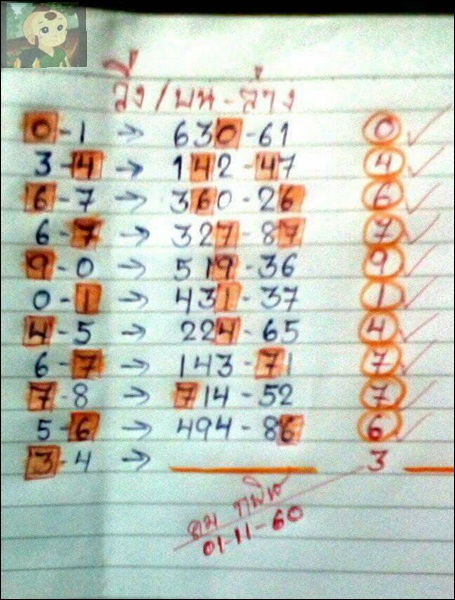 วิ่ง/บน-ล่าง
0-1 → 630-61 0 ✓
3-4 → 142-47 4 ✓
6-7 → 360-26 6 ✓
6-7 → 327-87 7 ✓
9-0 → 519-36 9 ✓
0-1 → 431-37 1 ✓
4-5 → 224-65 4 ✓
6-7 → 143-71 7 ✓
7-8 → 714-52 7 ✓
5-6 → 494-86 6 ✓
3-4 → 3
01-11-60